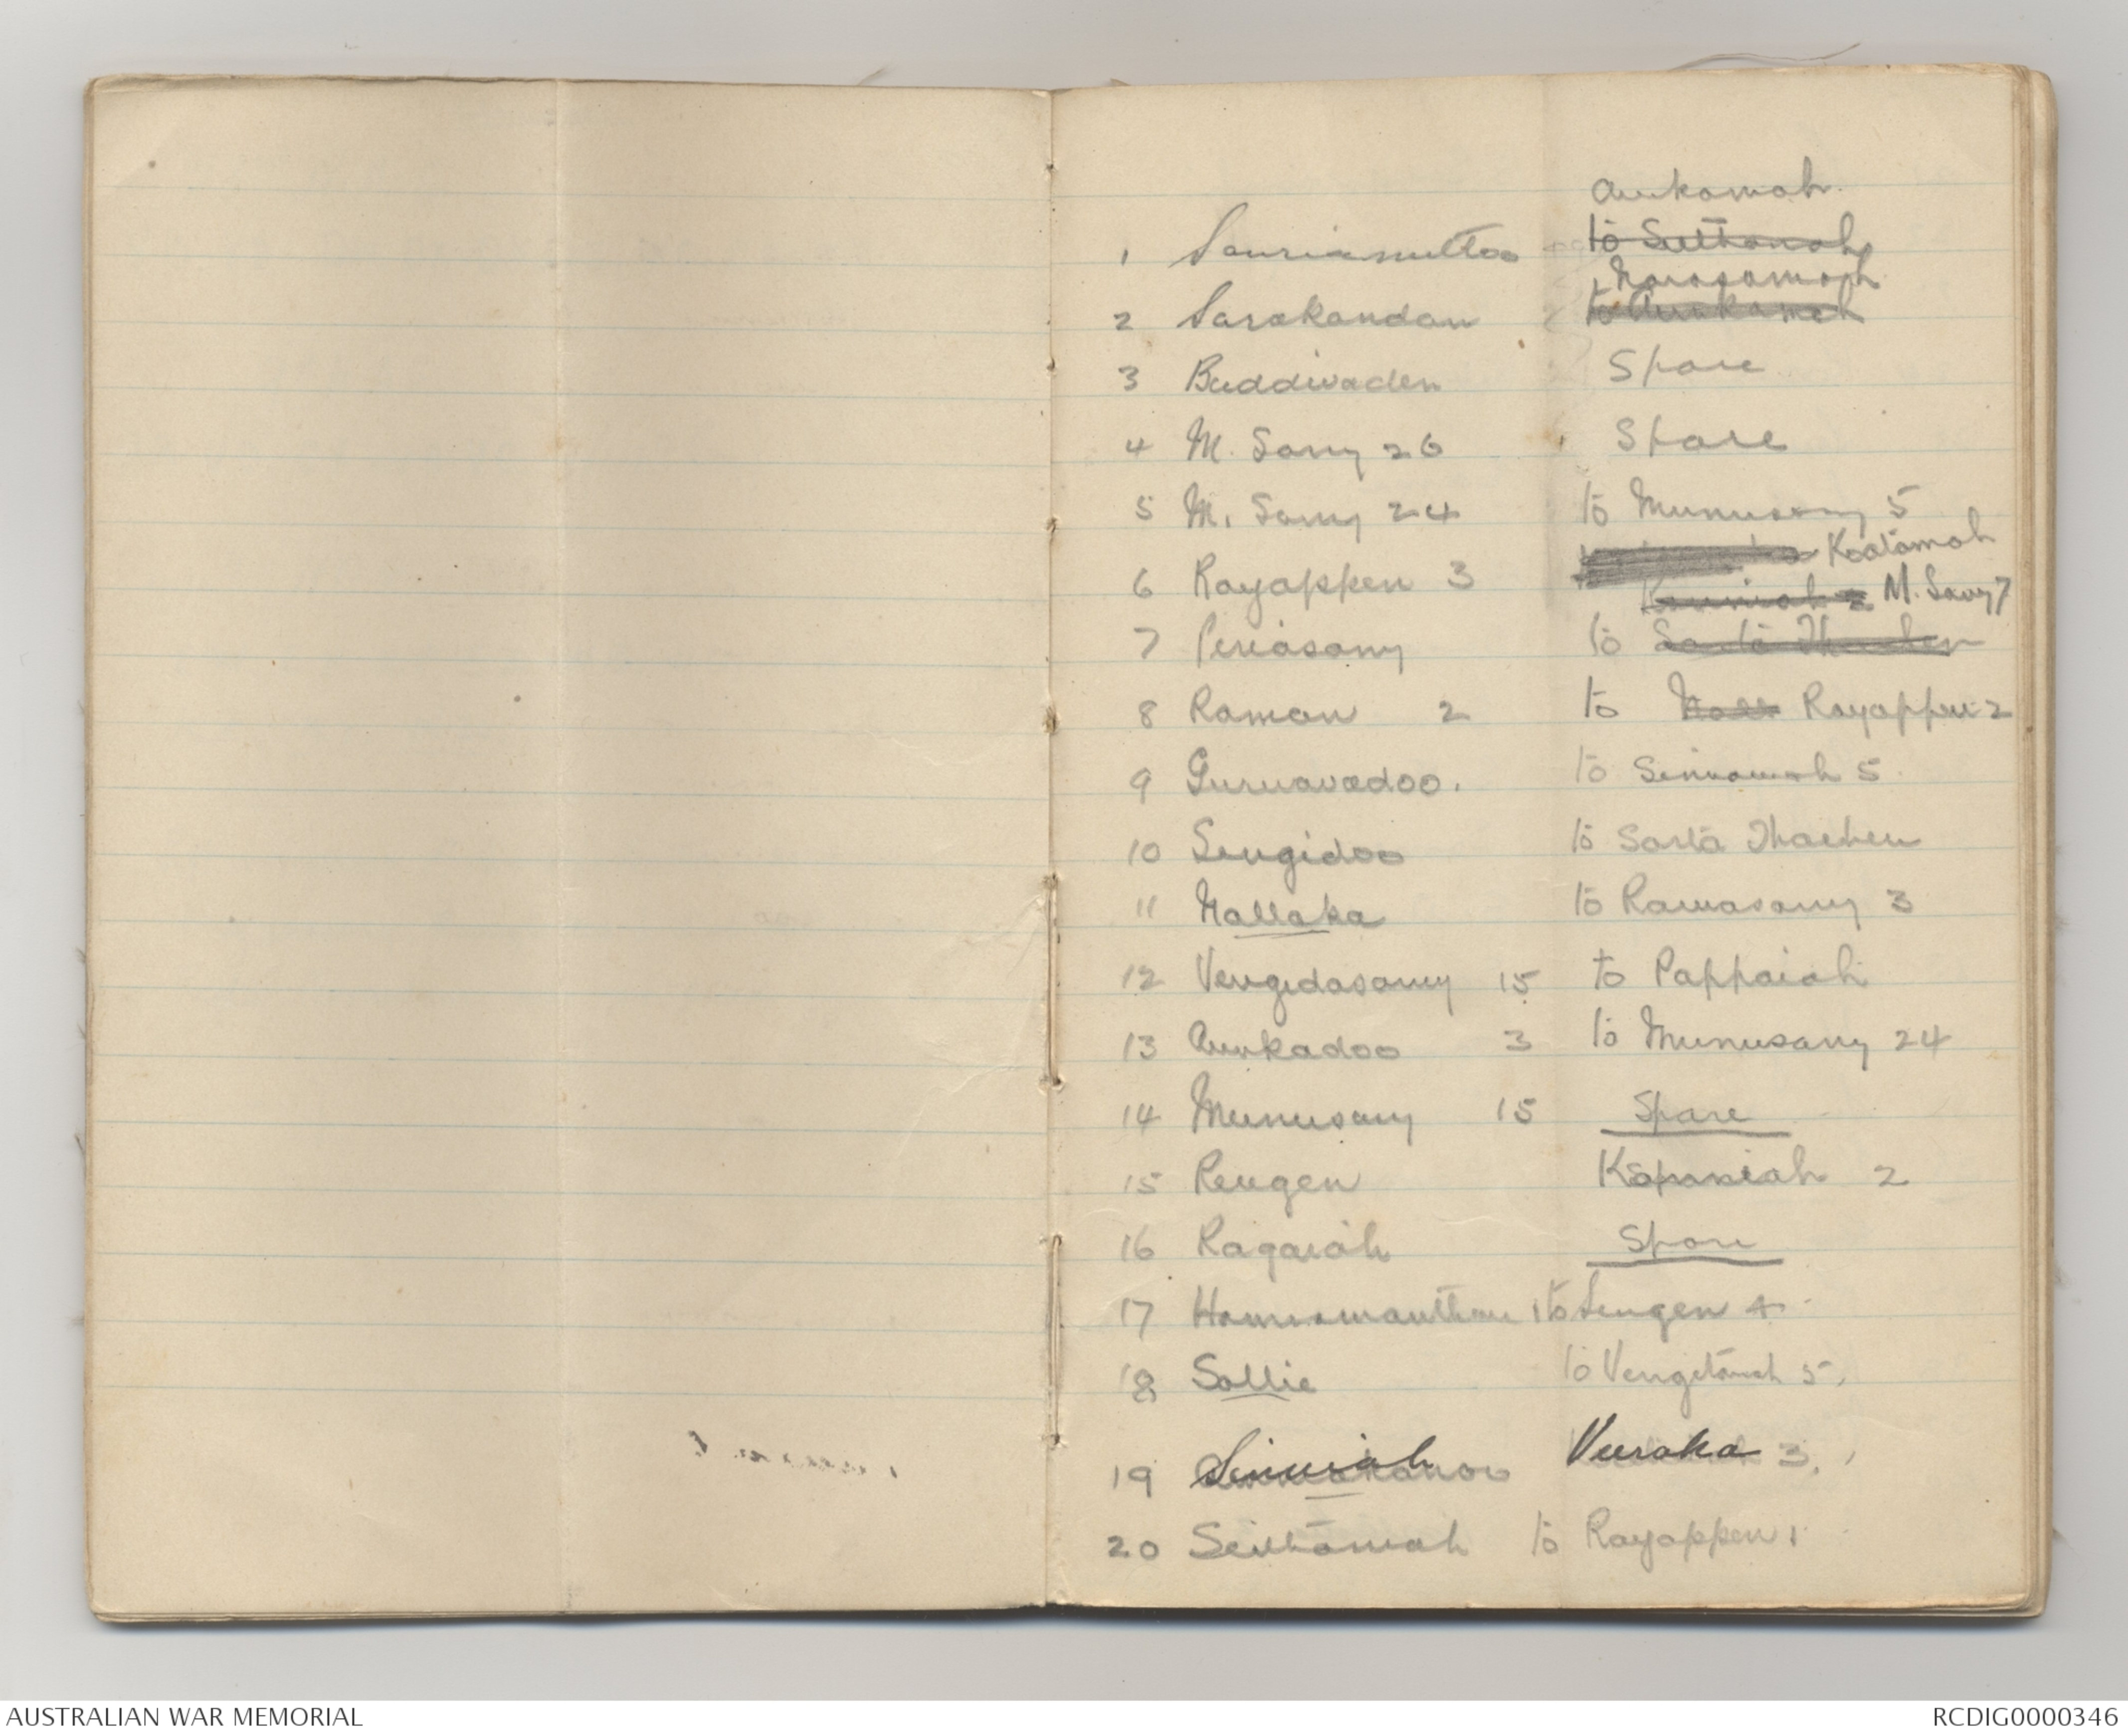 Aunkamah.
1 Souriamuttoo to Suthamah
Narasamah
2 Sarakandan to Aunkamah
3 Buddivaden Spare
4 M. Samy 26 Spare
5 M. Samy 24 to Munusamy 5
Koatamah
6 Rayappen 3
M. Samy 7
7 Periasamy to Santa Thachen
8 Raman 2 to Nall Rayappen 2
9 Guruavadoo. to Sinnamah 5
10 Sengidoo to Santa Thachen
11 Nallaka to Ramasamy 3
12 Vengidasamy 15 to Pappaiah
13 Aunkadoo 3 to Munusamy 24
14 Munusamy 15 Spare
15 Rengen 2
16 Ragaiah Spare
17 to Sengen 4
18 Sallie to Vengetamah 5.
19 Sinniah Veeraka 3.
20 Seithamah to Rayappen 1
AUSTRALIAN WAR MEMORIAL
RCDIG0000346